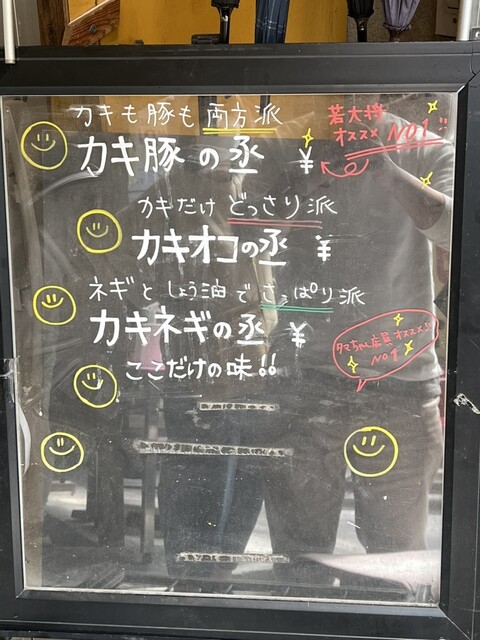 カキも豚も両方派
若大将
オススメ NO1!!
カキ豚の丞 ¥
カキだけどっさり派
カキオコの丞 ¥
ネギとしょう油でさっぱり派
カキネギの丞 ¥
タマちゃん店員オススメ!!
NO1
ここだけの味!!